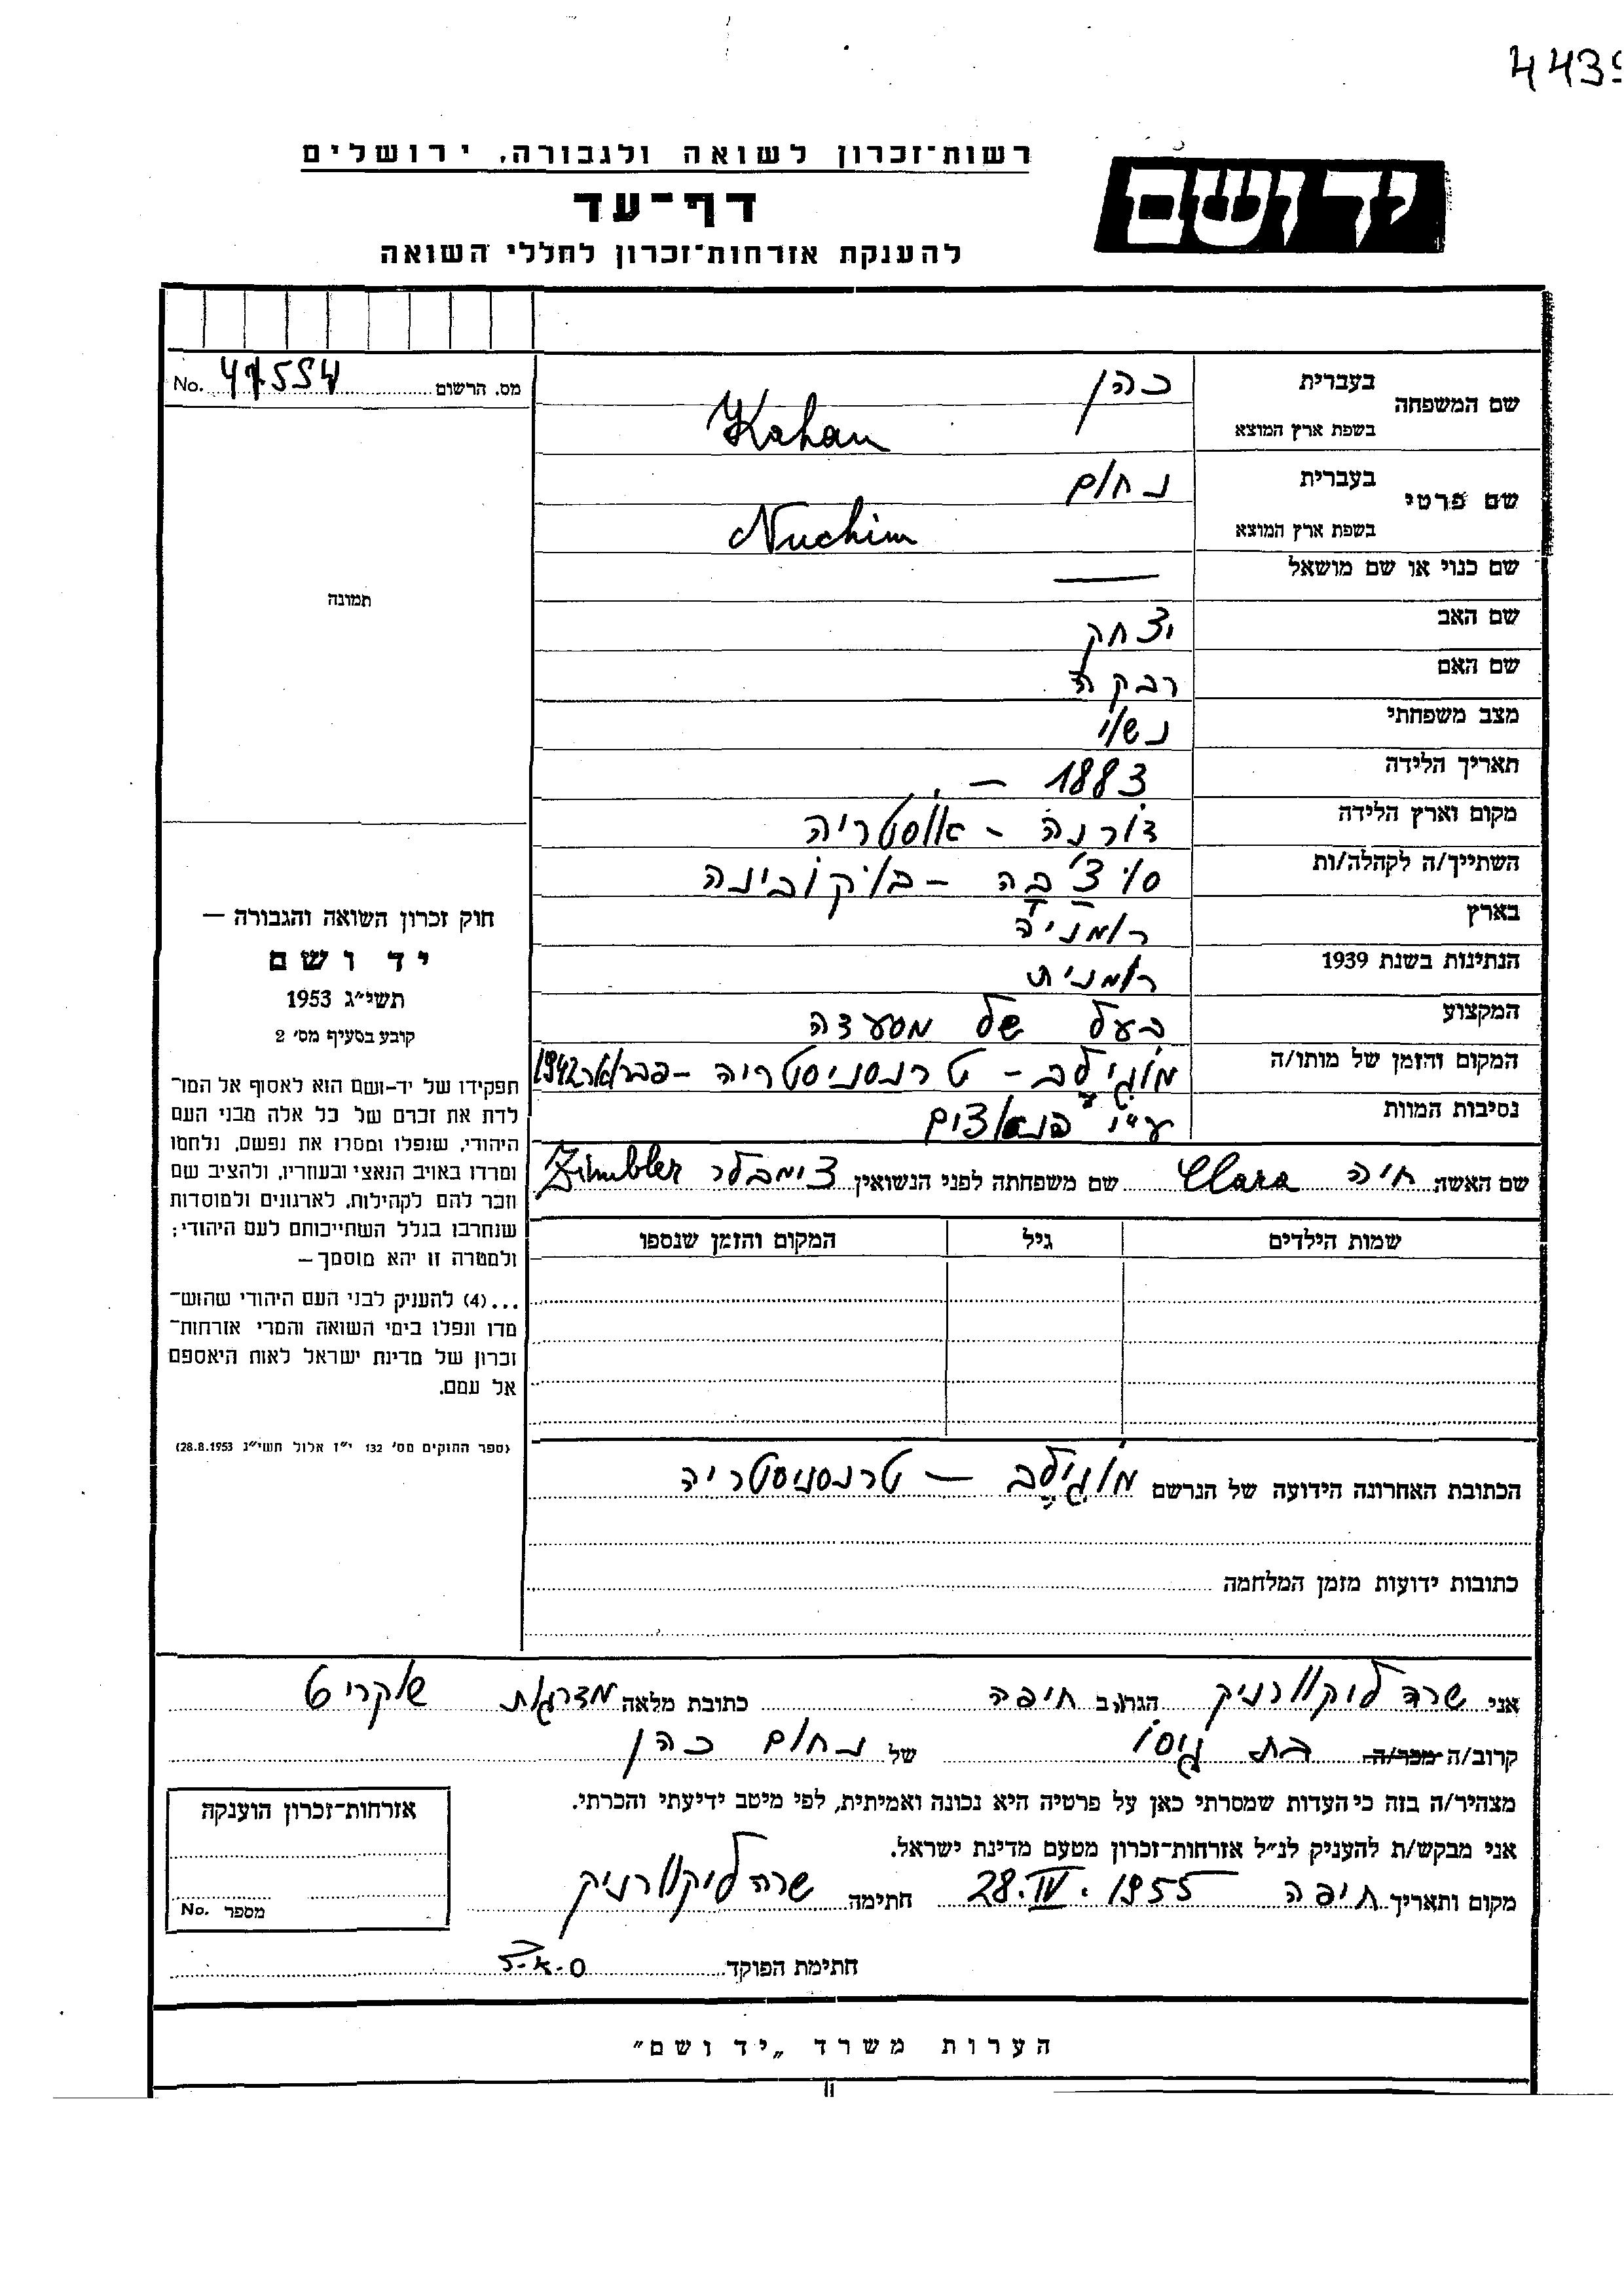 443
רשות־זכרון לשואה ולגבורה, ירושלים
יד ושם
דף־עד
להענקת אזרחות־זכרון לחללי השואה
מס. הרשום 47554 No.
שם המשפחה בעברית כהן
בשפת ארץ המוצא Kahan
שם פרטי בעברית נחום
בשפת ארץ המוצא Nuchim
שם כנוי או שם מושאל —
שם האב יצחק
שם האם רבקה
מצב משפחתי נשוי
תאריך הלידה 1883 —
מקום וארץ הלידה דורנה - אוסטריה
השתייך/ה לקהלה/ות סוצ'בה - בוקובינה
בארץ רומניה
הנתינות בשנת 1939 רומנית
המקצוע בעל של מסעדה
המקום והזמן של מותו/ה מוגילב - טרנסניסטריה - פברואר 1942
נסיבות המוות ע"י הנאצים
שם האשה חיה Clara שם משפחתה לפני הנשואין צימבלר Zimbler
שמות הילדים גיל המקום והזמן שנספו
הכתובת האחרונה הידועה של הנרשם מוגילב — טרנסניסטריה
כתובות ידועות מזמן המלחמה
תמונה
חוק זכרון השואה והגבורה —
יד ושם
תשי״ג 1953
קובע בסעיף מס׳ 2
תפקידו של יד-ושם הוא לאסוף אל המו־
לדת את זכרם של כל אלה מבני העם
היהודי, שנפלו ומסרו את נפשם, נלחמו
ומרדו באויב הנאצי ובעוזריו, ולהציב שם
וזכר להם לקהילות, לארגונים ולמוסדות
שנחרבו בגלל השתייכותם לעם היהודי;
ולמטרה זו יהא מוסמך —
...(4) להעניק לבני העם היהודי שהוש־
מדו ונפלו בימי השואה והמרי אזרחות־
זכרון של מדינת ישראל לאות היאספם
אל עמם.
(ספר החוקים מס׳ 132 י״ז אלול תשי״ג 28.8.1953)
אני שרה ליקוורניק הגר/ה ב חיפה כתובת מלאה מדרגות שוקריט
קרוב/ה מכר/ה בת גיסו של נחום כהן
מצהיר/ה בזה כי העדות שמסרתי כאן על פרטיה היא נכונה ואמיתית, לפי מיטב ידיעתי והכרתי.
אני מבקש/ת להעניק לנ״ל אזרחות־זכרון מטעם מדינת ישראל.
מקום ותאריך חיפה 28.IV.1955 חתימה שרה ליקוורניק
אזרחות־זכרון הוענקה
מספר No.
חתימת הפוקד
הערות משרד „יד ושם״